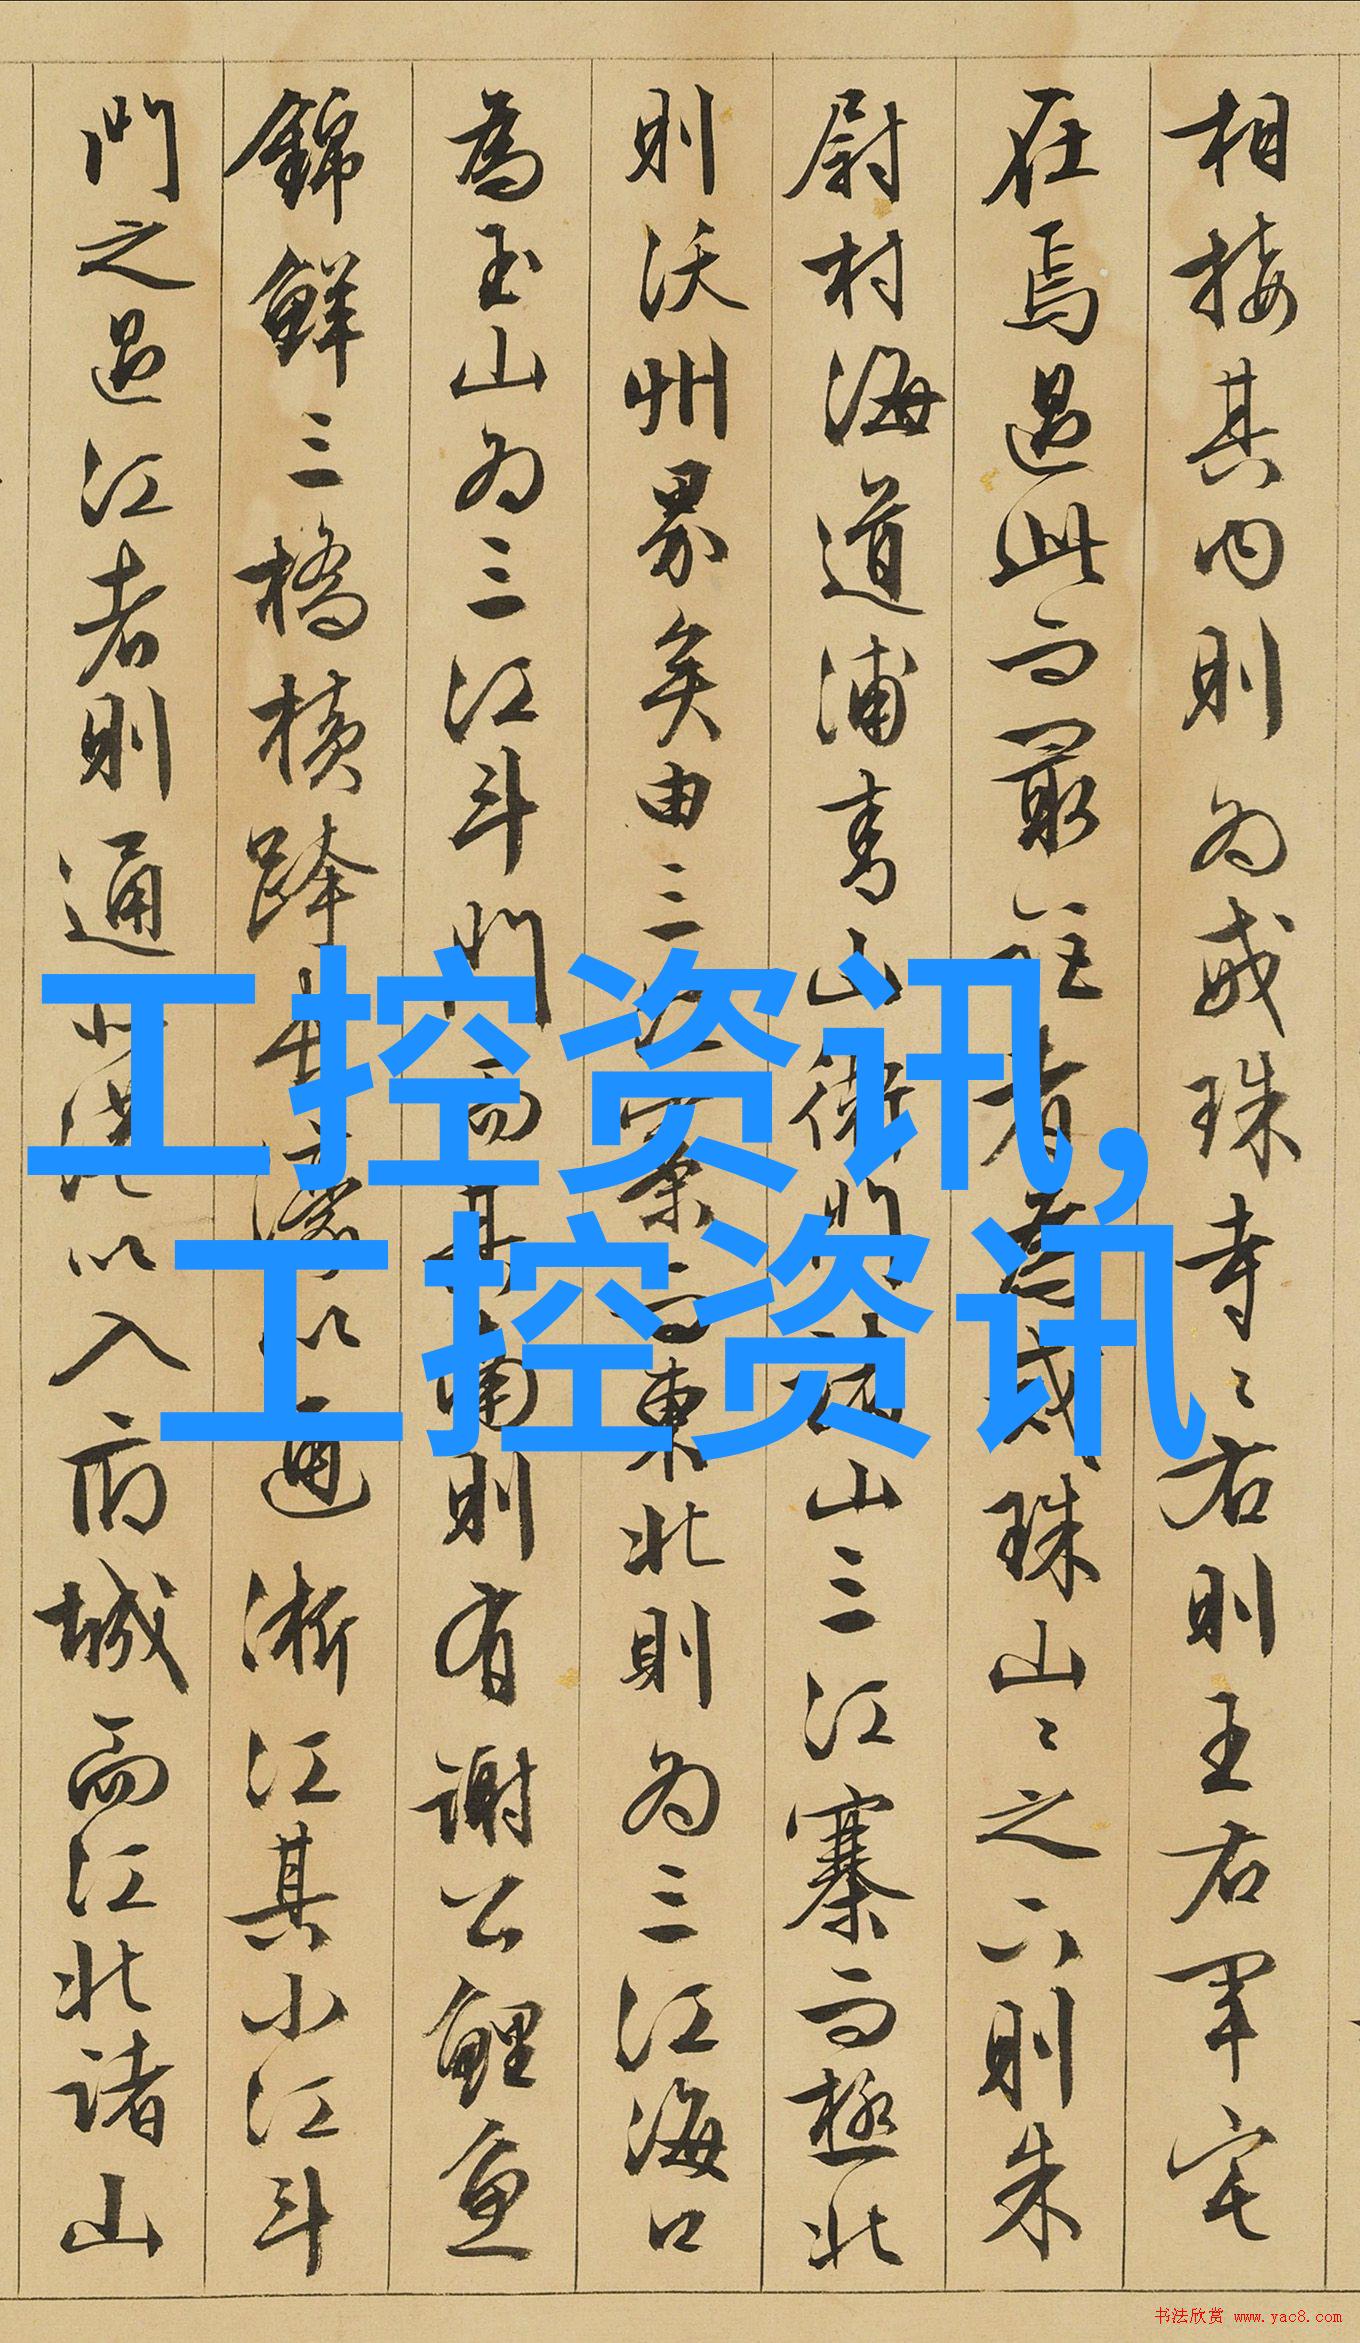 相接其内則为戒珠寺〻右則王右軍宅
在焉過此而最 者 戒珠山〻之 則朱
尉村海道浦 山 山三江寨而極北
則沃州界矣由三江 而東北則为三江海口
為玉山为三江斗門而其南則有謝公鯉魚
錦鮮三橋橫跨 以通浙江其小江斗
門之過江者則通 以入府城而江北諸山
工控资讯,
工控资讯
书法欣赏 www.yac8.com